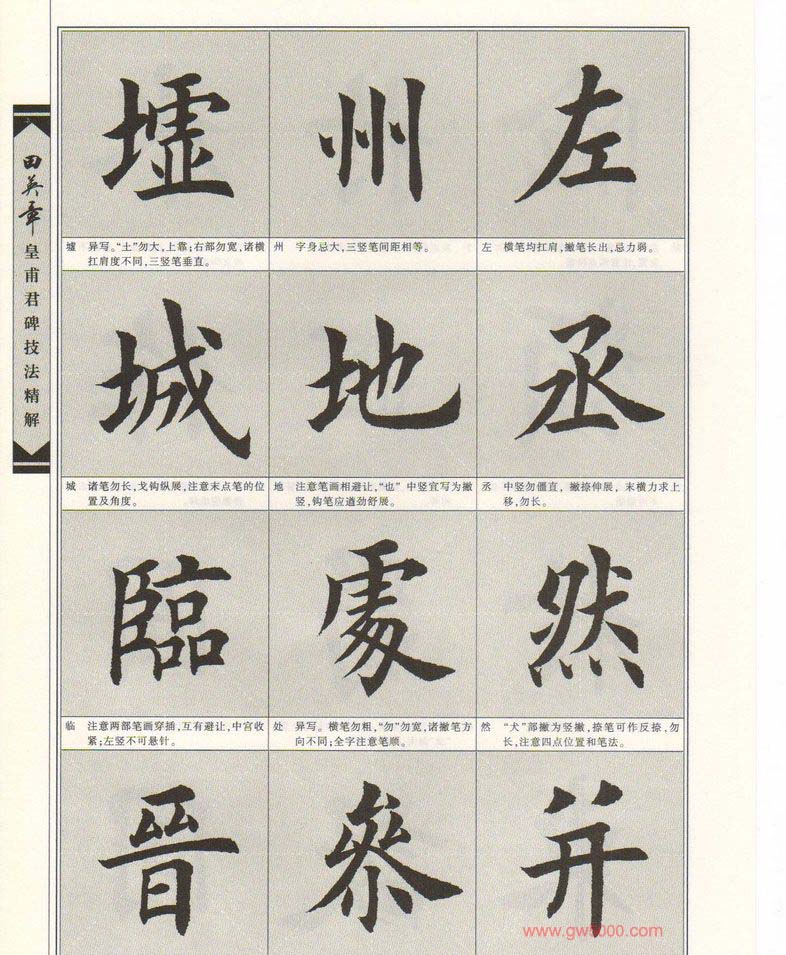 田英章
皇甫君碑技法精解
墟 州 左
墟 异写。“土”勿大,上靠;右部勿宽,诸横
扛肩度不同,三竖笔垂直。
州 字身忌大,三竖笔间距相等。
左 横笔均扛肩,撇笔长出,忌力弱。
城 地 丞
城 诸笔勿长,戈钩纵展,注意末点笔的位
置及角度。
地 注意笔画相避让,“也”中竖宜写为撇
竖,钩笔应遒劲舒展。
丞 中竖勿僵直,撇捺伸展,末横力求上
移,勿长。
臨 處 然
临 注意两部笔画穿插,互有避让,中宫收
紧;左竖不可悬针。
处 异写。横笔勿粗,“勿”勿宽,诸撇笔方
向不同;全字注意笔顺。
然 “犬”部撇为竖撇,捺笔可作反捺,勿
长,注意四点位置和笔法。
晉 叅 并
www.gw5000.com